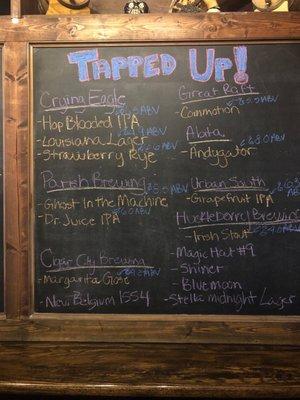 TAPPED UP!
Crying Eagle
- Hop Blooded IPA
- Louisiana Lager
- Strawberry Rye
Parish Brewing
- Ghost In the Machine
- Dr. Juice IPA
Cigar City Brewing
- Margarita Gose
- New Belgium 1554
Great Raft
- Commotion
Abita
- Andygator
Urban South
- Grapefruit IPA
Huckleberry Brewing
- Irish Stout
- Magic Hat #9
- Shiner
- Bluemoon
- Stella midnight Lager